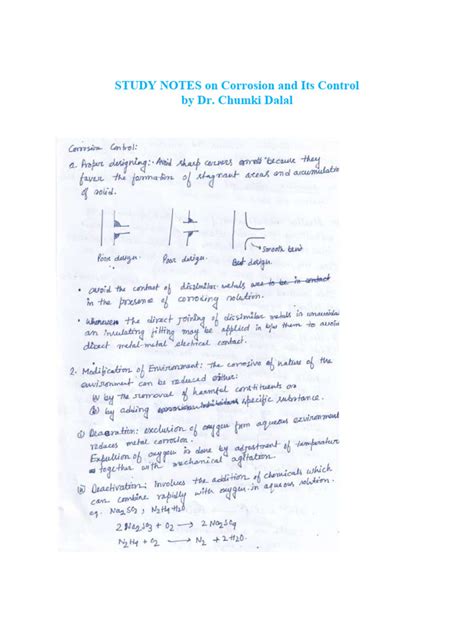 STUDY NOTES on Corrosion and Its Control
by Dr. Chumki Dalal
Corrosion Control:
1. Proper designing:- Avoid sharp corners because they
favor the formation of stagnant areas and accumulation
of solid.
Poor design. Poor design. Best design.
Smooth bend
• avoid the contact of dissimilar metals
in the presence of corroding solution.
• Whenever the direct joining of dissimilar metals is unavoidable
an insulating fitting may be applied in b/w them to avoid
direct metal-metal electrical contact.
2. Modification of Environment: The corrosive nature of the
environment can be reduced either:
(i) by the removal of harmful constituents or
(ii) by adding specific substance.
(i) Deaeration: exclusion of oxygen from aqueous environment
reduces metal corrosion.
Expulsion of oxygen is done by adjustment of temperature
together with mechanical agitation.
(ii) Deactivation: involves the addition of chemicals which
can combine rapidly with oxygen in aqueous solution.
eg. Na2SO3, N2H4·H2O.
2 Na2SO3 + O2 → 2 Na2SO4
N2H4 + O2 → N2 + 2H2O.